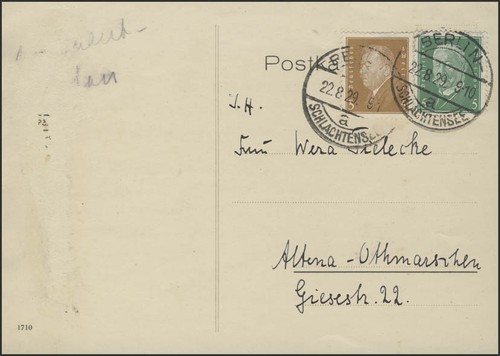 Postka
BERLIN-
22.8.29.9-10
a
SCHLACHTENSEE
22.8.29.9-
a
SCHLACHTENSEE
3
5
J. H.
Frau Wera
Altona-Othmarschen
Giesestr. 22.
1710